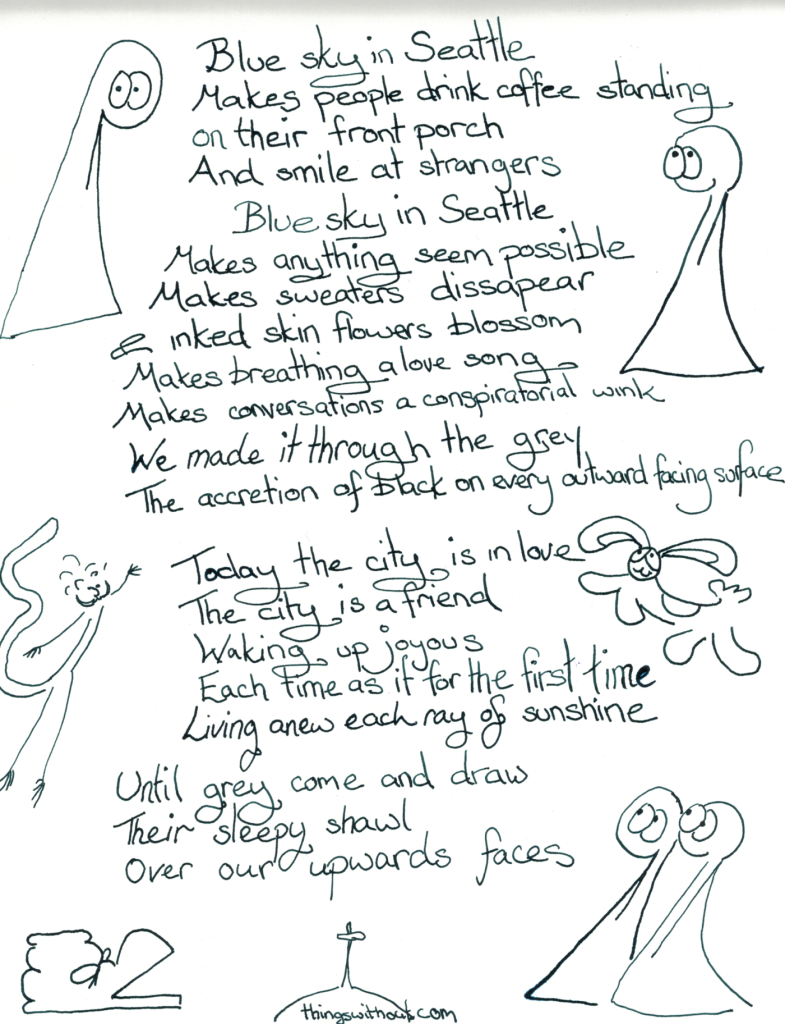 Blue sky in Seattle
Makes people drink coffee standing
on their front porch
And smile at strangers
Blue sky in Seattle
Makes anything seem possible
Makes sweaters dissapear
& inked skin flowers blossom
Makes breathing a love song
Makes conversations a conspiratorial wink
We made it through the grey
The accretion of black on every outward facing surface
Today the city is in love
The city is a friend
Waking up joyous
Each time as if for the first time
Living anew each ray of sunshine
Until grey come and draw
Their sleepy shawl
Over our upwards faces
thingswithout.com